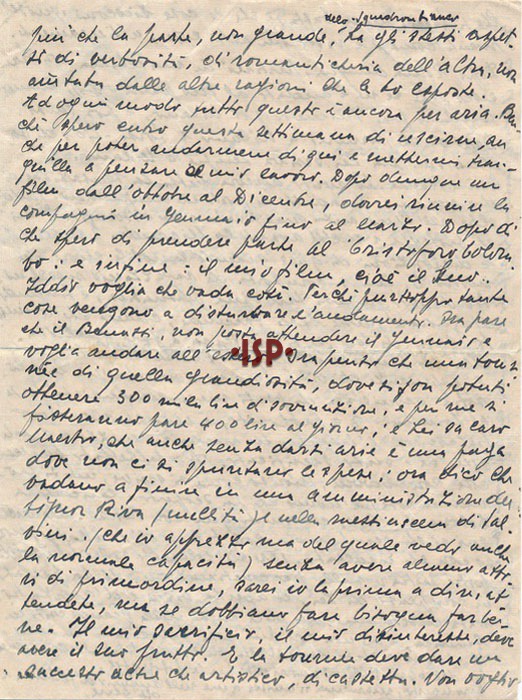 dello Squadron bianco
più che la parte, non grande, ha gli stessi aspet-
ti di verbosità, di romanticheria dell'altra, non
aiutata dalle altre ragioni che le ho esposte.
Ad ogni modo tutto questo è ancora per aria. Ben
chè spero entro questa settimana di uscirne, an
che per poter andarmene di qui e mettermi tran-
quilla a pensare al mio lavoro. Dopo dunque un
film dall'ottobre al Dicembre, dovrei riunire la
compagnia in Gennaio fino al Marzo. Dopo di
che spero di prendere parte al Cristoforo Colom
bo: e infine: il mio film, cioè il Suo.
Iddio voglia che vada così. Perchè purtroppo tante
cose vengono a disturbare l'andamento. Ora pare
che il Benassi, non possa attendere il Gennaio e
voglia andare all' Ora penso che una tour
née di quella grandiosità, dove si son potuti
ottenere 300 mila lire di sovvenzione, e per me si
fisseranno pare 400 lire al giorno, e Lei sa caro
Maestro, che anche senza darsi arie è una paga
dove non ci si spuntano le spese; ora dico che
vadano a finire in una amministrazione del
Signor Riva (nullità) e nella messinscena di Sal-
vini (che io apprezzo ma del quale vedo anche
la normale capacità) senza avere almeno atto-
ri di primordine, sarei io la prima a dire, at
tendete, ma se dobbiamo fare bisogna far be-
ne. Il mio sacrificio, il mio disinteresse, deve
avere il suo frutto. E la tournée deve dare un
successo oltre che artistico, di cassetta. Non voglio
ISP